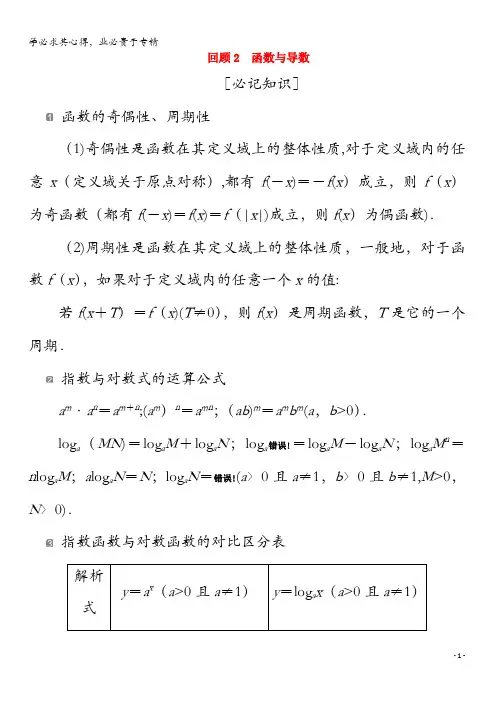 学必求其心得，业必贵于专精
回顾2 函数与导数
［必记知识］
1 函数的奇偶性、周期性
（1)奇偶性是函数在其定义域上的整体性质,对于定义域内的任
意 x（定义域关于原点对称）,都有 f(－x)＝－f(x）成立，则 f（x）
为奇函数（都有 f(－x)＝f(x)＝f（|x|)成立，则f(x）为偶函数)．
(2)周期性是函数在其定义域上的整体性质，一般地，对于函
数 f（x），如果对于定义域内的任意一个 x 的值:
若 f(x＋T）＝f（x)(T≠0)，则 f(x）是周期函数，T 是它的一个
周期．
2 指数与对数式的运算公式
aᵐ·aⁿ＝aᵐ⁺ⁿ;(aᵐ）ⁿ＝aᵐⁿ；（ab)ᵐ＝aᵐbᵐ(a，b>0）．
logₐ（MN)＝logₐM＋logₐN；logₐ错误!＝logₐM－logₐN；logₐMⁿ＝
nlogₐM；alogₐN＝N；logₐN＝错误!(a〉0 且 a≠1，b〉0 且 b≠1,M>0，
N〉0)．
3 指数函数与对数函数的对比区分表
解析式 y＝aˣ（a>0 且 a≠1） y＝logₐx（a>0 且 a≠1）
- 1 -